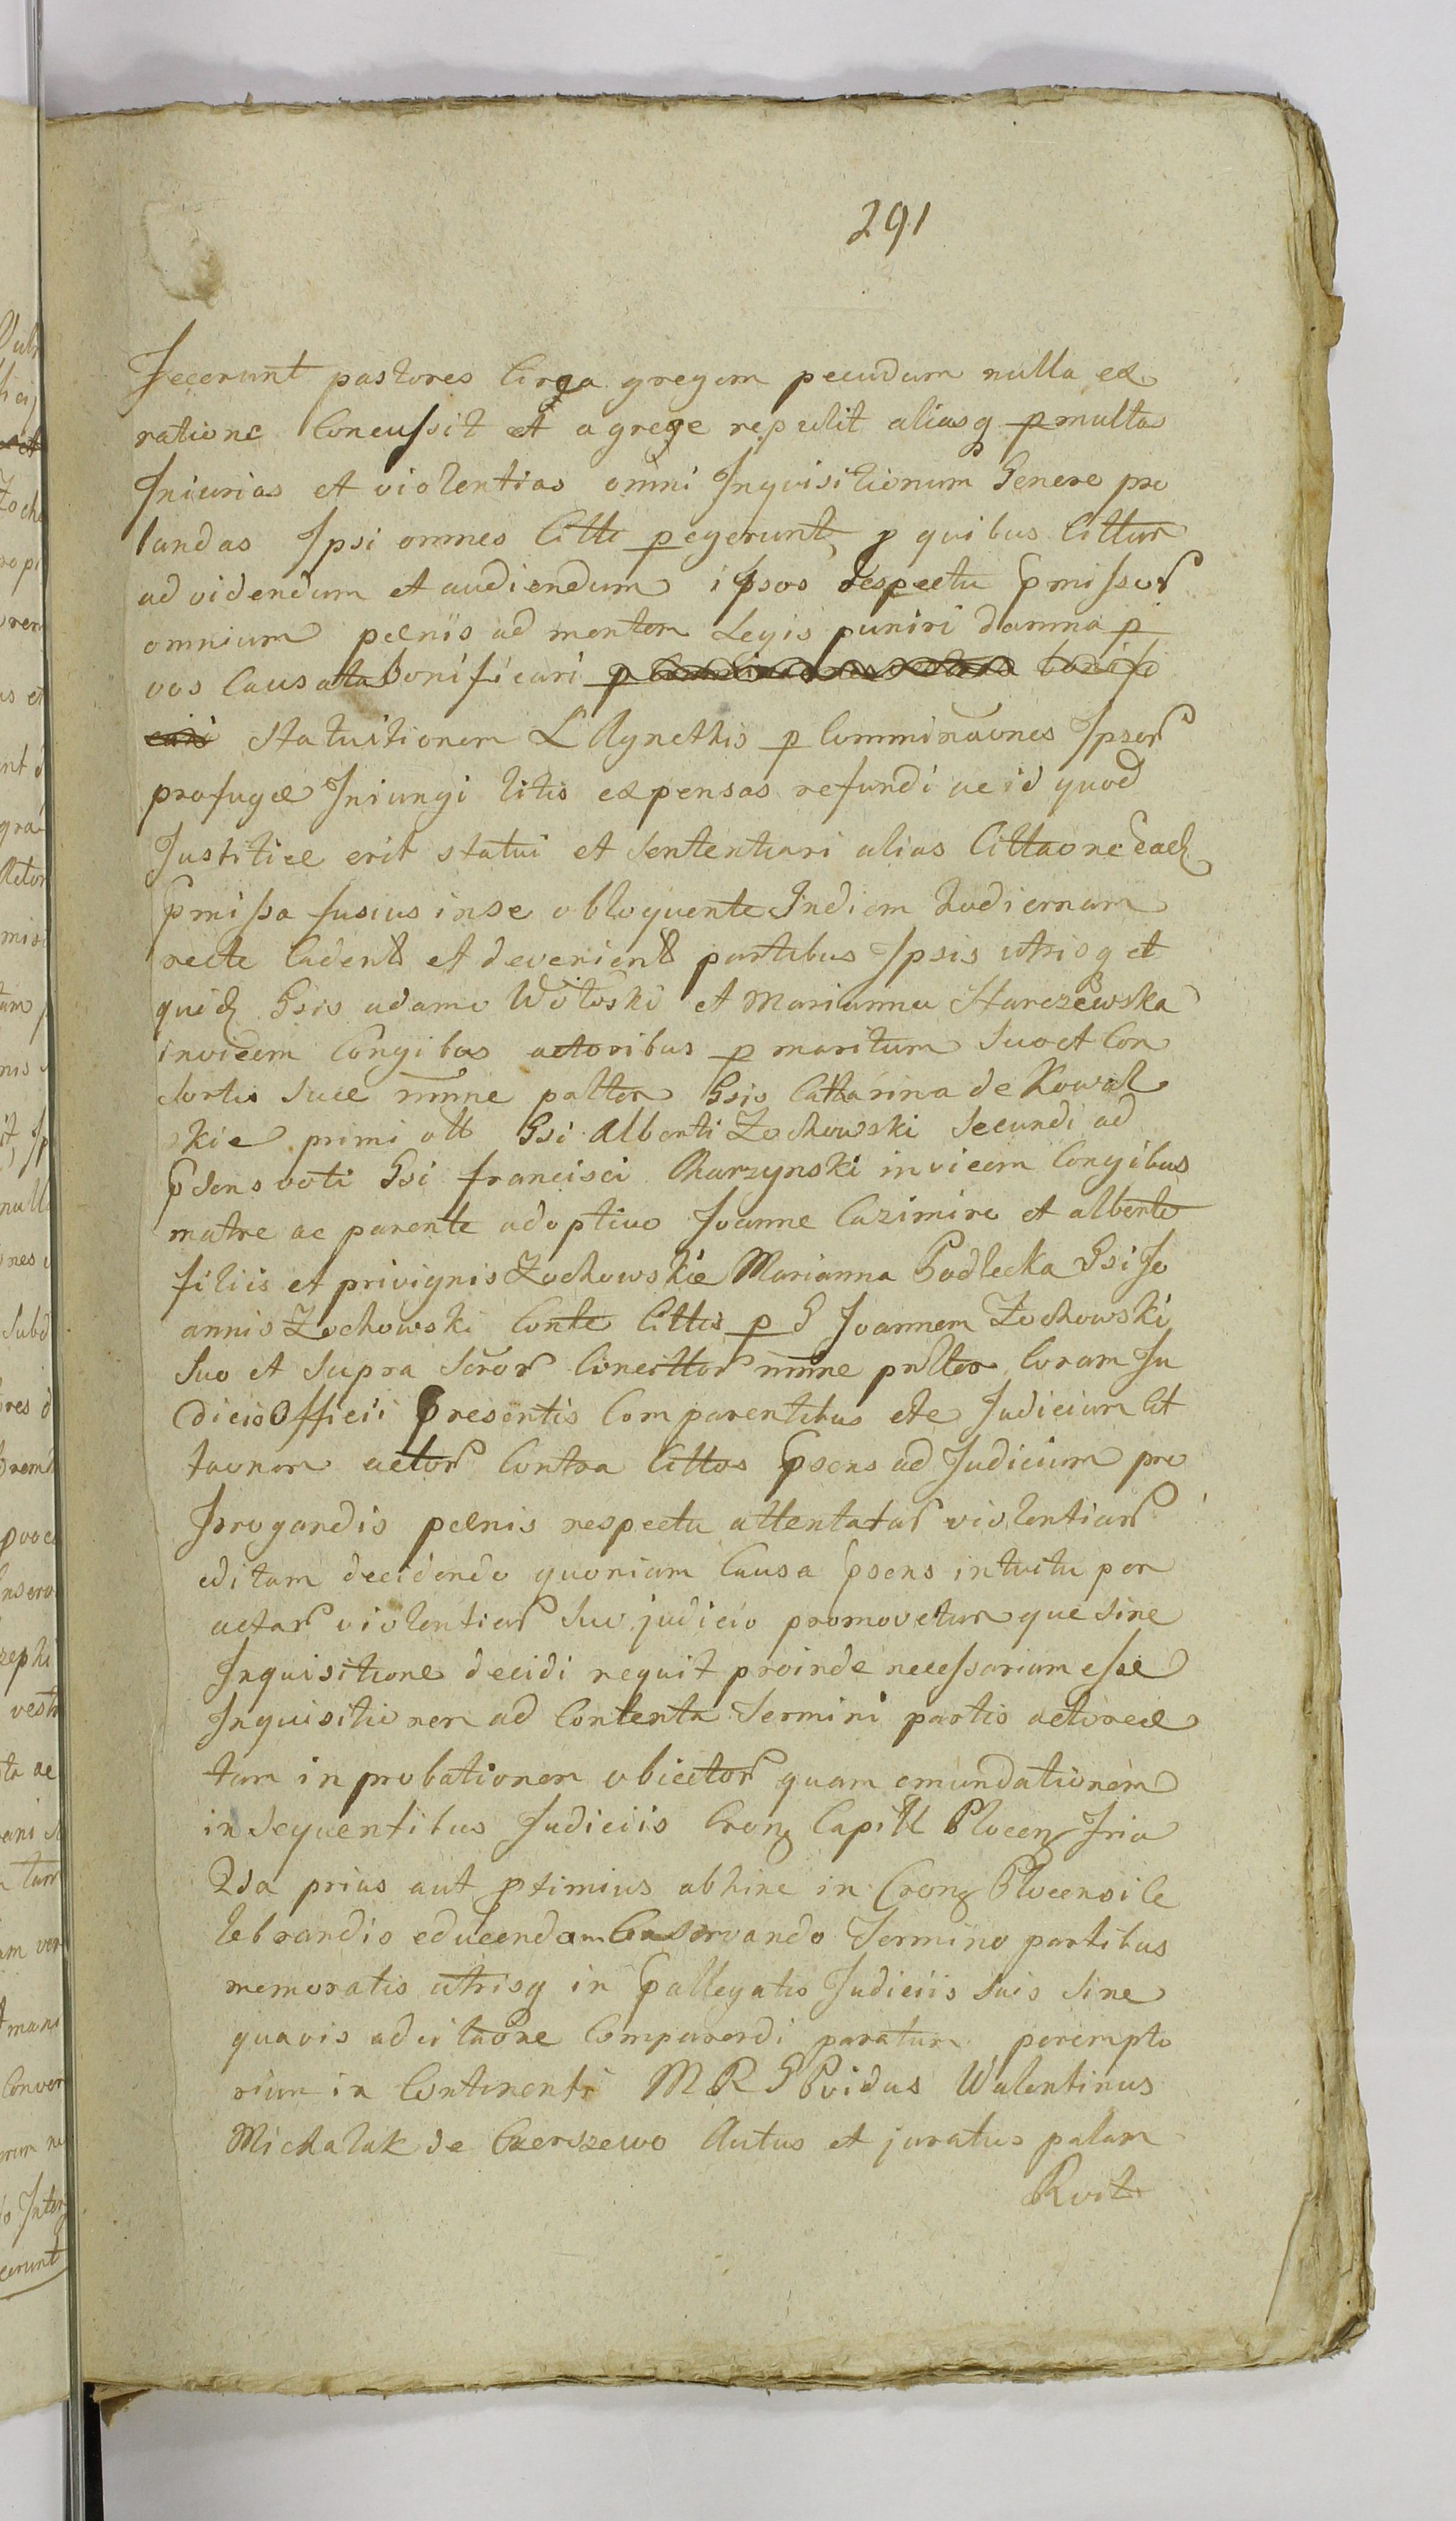 291
Fecerunt pastores Circa gregem pecudum nulla ex
ratione Concussit et a grege repulit aliasq p multas
Iniurias et violentias omni Inqvisitionum Genere pro
bandas Ipsi omnes Citti pegerunt, p quibus Cittur
ad videndum et audiendum ipsos respectu Pmissor
omnium paenis ad mentem Legis puniri damna p
vos Causata bonificari p
statuitionem L Agnethis p Comminaones Ipsor
profugae Iniungi litis expensas refundi ac id quod
Justitiae erit statui et sententiari alias Cittaone Ead
Pmissa fusius in se obloquente In diem hodiernam
recte Cadent et devenient partibus Ipsis utrisq et
quid Gsis adamo Wołoski et Marianna Starczewska
invicem Congibus actoribus p maritum Suo et Con
sortis suae nmne paltter Gsis Cattarina de Kowal
skie primi ott Gsi Alberti Zochowski Secundi ad
Psens voti Gsi francisci Charzynski invicem Congibus
matre ac parente adoptivo Joanne Cazimiro et alberto
filiis et privignis Zochowskie Marianna Podlecka Gsi Jo
annis Zochowski Conte Cittis p G Joannem Zochowski
Suo et supra Scror Concittor nmne paltter Coram Ju
dicio Officii Presentis Comparentibus etc Judicium Cit
taonem actor Contra Cittos Psens ad Judicium pro
Irrogandis paenis respectu attentatar violentiar
editam decidendo quoniam Causa Psens intuitu per
actar violentiar suo judicio promovetur que sine
Inquisitione decidi nequit proinde necessariam esse
Inquisitionem ad Contenta Termini partis actoreae
tam in probationem obiector quam emundationem
in sequentibus Judiciis Crong Capitl Plocen Fria
2da prius aut ptimius abhinc in Crong Plocensi Ce
lebrandis educendam Conservando Termino partibus
memoratis utrisq in Pallegatis Judiciis suis sine
quavis adcitaone Comparendi paratum perempto
rium in Continenti M R G Pvidus Walentinus
Michalak de Czerszewo Autus et juratus palam
Rvit